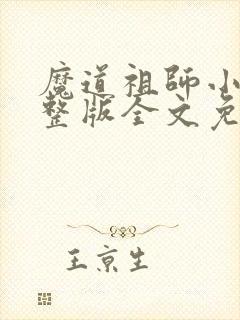 魔道祖師小
整版全文免
王京生